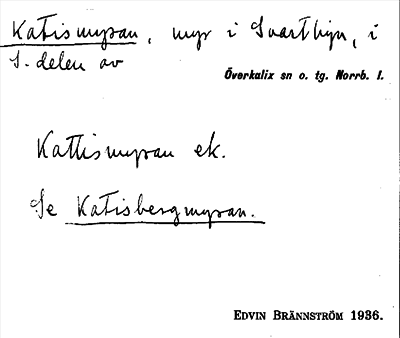 Katismyran, myr i Svartbyn, i
S. delen av
Överkalix sn o. tg. Norrb. l.
Kattismyran ek.
Se Katisbergmyran.
EDVIN BRÄNNSTRÖM 1936.